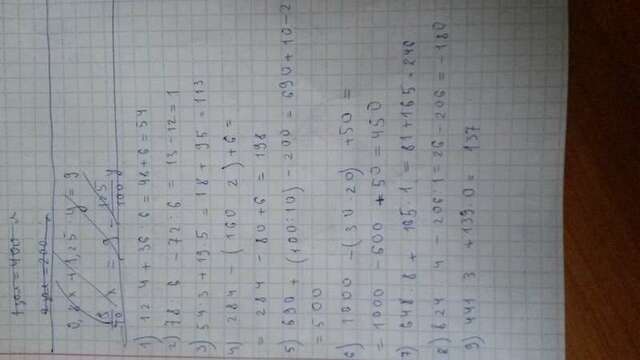 1 зал = 400 л
2 зал = 200
0,8x + 1,25 y = 9
8/10 x = 9 - 125/100 y
1) 12 4 + 36 : 6 = 48+6 = 54
2) 78 : 6 - 72 : 6 = 13 - 12 = 1
3) 54 : 3 + 19 · 5 = 18 + 95 = 113
4) 284 - ( 160 2 ) + 6 =
= 284 - 80 + 6 = 198
5) 690 + (100:10) - 200 = 690 + 10 - 2
= 500
6) 1000 - ( 30 20 ) + 50 =
= 1000 - 600 + 50 = 450
7) 648 8 + 165 · 1 = 81 + 165 = 246
8) 624 4 - 206 · 1 = 26 - 206 = - 180
9) 441 3 + 139 · 0 = 137